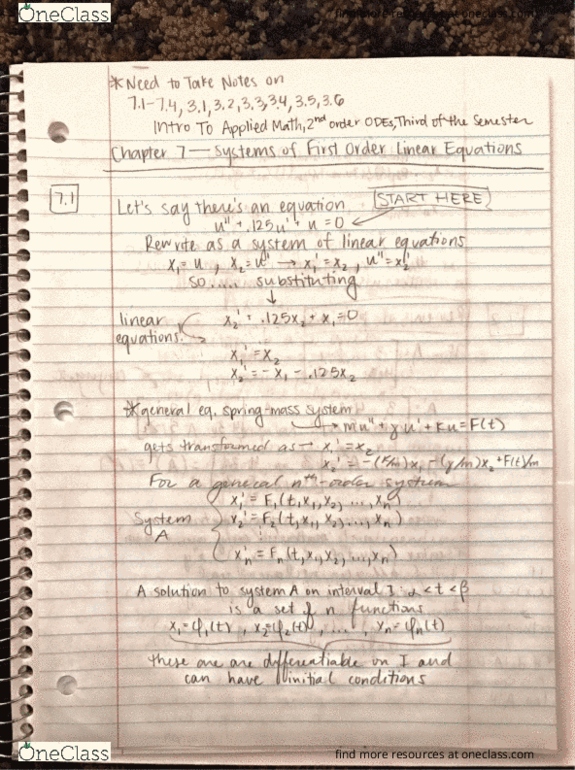 OneClass
find more resources at oneclass.com
*Need to Take Notes on
7.1-7.4, 3.1, 3.2, 3.3, 3.4, 3.5, 3.6
Intro To Applied Math, 2nd order ODEs, Third of the Semester
Chapter 7 — Systems of First Order Linear Equations
7.1
Let's say there's an equation START HERE
u'' + .125u' + u = 0
Rewrite as a system of linear equations
x₁ = u , x₂ = u' → x₁' = x₂ , u'' = x₂'
so..... substituting
↓
linear equations
x₂' + .125x₂ + x₁ = 0
x₁' = x₂
x₂' = - x₁ - .125x₂
*general eq. spring-mass system
→ mu'' + γu' + ku = F(t)
gets transformed as → x₁' = x₂
x₂' = -(k/m)x₁ - (γ/m)x₂ + F(t)/m
For a general nth-order system
System A
x₁' = F₁(t, x₁, x₂, ..., xₙ)
x₂' = F₂(t, x₁, x₂, ..., xₙ)
⋮
xₙ' = Fₙ(t, x₁, x₂, ..., xₙ)
A solution to system A on interval I: α < t < β
is a set of n functions
x₁ = φ₁(t) , x₂ = φ₂(t) , ... , xₙ = φₙ(t)
these are are differentiable on I and
can have initial conditions
OneClass
find more resources at oneclass.com